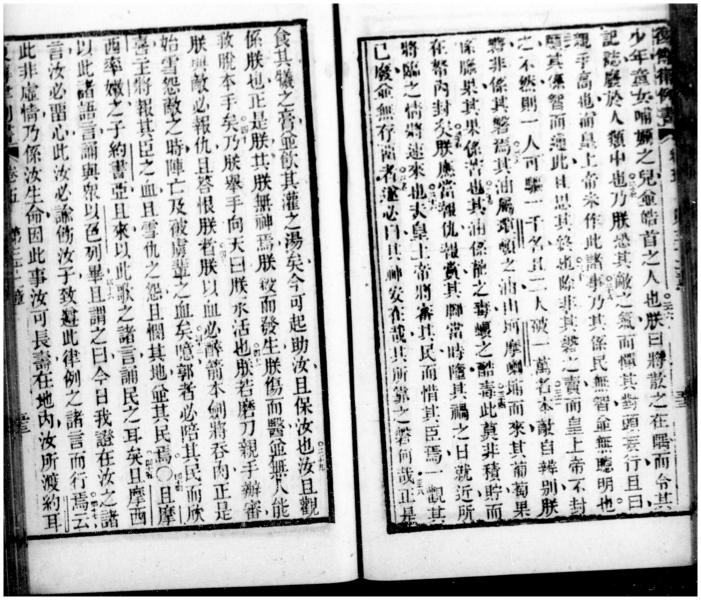 少年童女哺嬭之兒並皓首之人也朕曰將散之在隅而令其
記誌廢於人類中也乃朕恐其敵之氣而憚其對頭妄行且曰
親手高也而皇上帝未作此諸事乃其係民無智並無聰明也
願其係智而通此且思其終也除非其磐之賣而皇上帝不封
之不然則一人可驅一千名且二人破一萬者本敵自辨別朕
磐非係其磐焉其油屬頓之油由坷摩喇埔而來其葡萄果
係膽果其果係苦也其油係龍之毒之酷毒此莫非積貯而
在帑內封矣朕應當報仇報賞其腳當時隨其禍之日就近所
將臨之情將速來也夫皇上帝將審其民而惜其臣焉一觀其
已廢並無存留者遂必曰其神安在哉其所靠之磐何哉正是
食其犧之膏並飲其灌之湯矣今可起助汝且保汝也汝且觀
係朕也正是朕共朕無神焉朕殺而發生朕傷而醫並無人能
救脫本手矣乃朕舉手向天曰朕永活也朕若磨刀親手辦審
朕與敵必報仇且答恨朕者朕以血必醉箭本劍將吞肉正是
始雪怨敵之時陣亡及被虜輩之血矣噫郭者必陪其民而欣
喜主將報其臣之血且雪仇之怨且憫其地並其民焉〇且摩
西率嫩之子約書亞且來以此歌之諸言誦民之耳矣且摩西
以此諸語言誦與眾以色列畢且謂之曰今日我證在汝之諸
言汝必畱心此汝必諭飭汝子致遵此律例之諸言而行焉云
此非虛情乃係汝生命因此事汝可長壽在地內汝所渡約耳